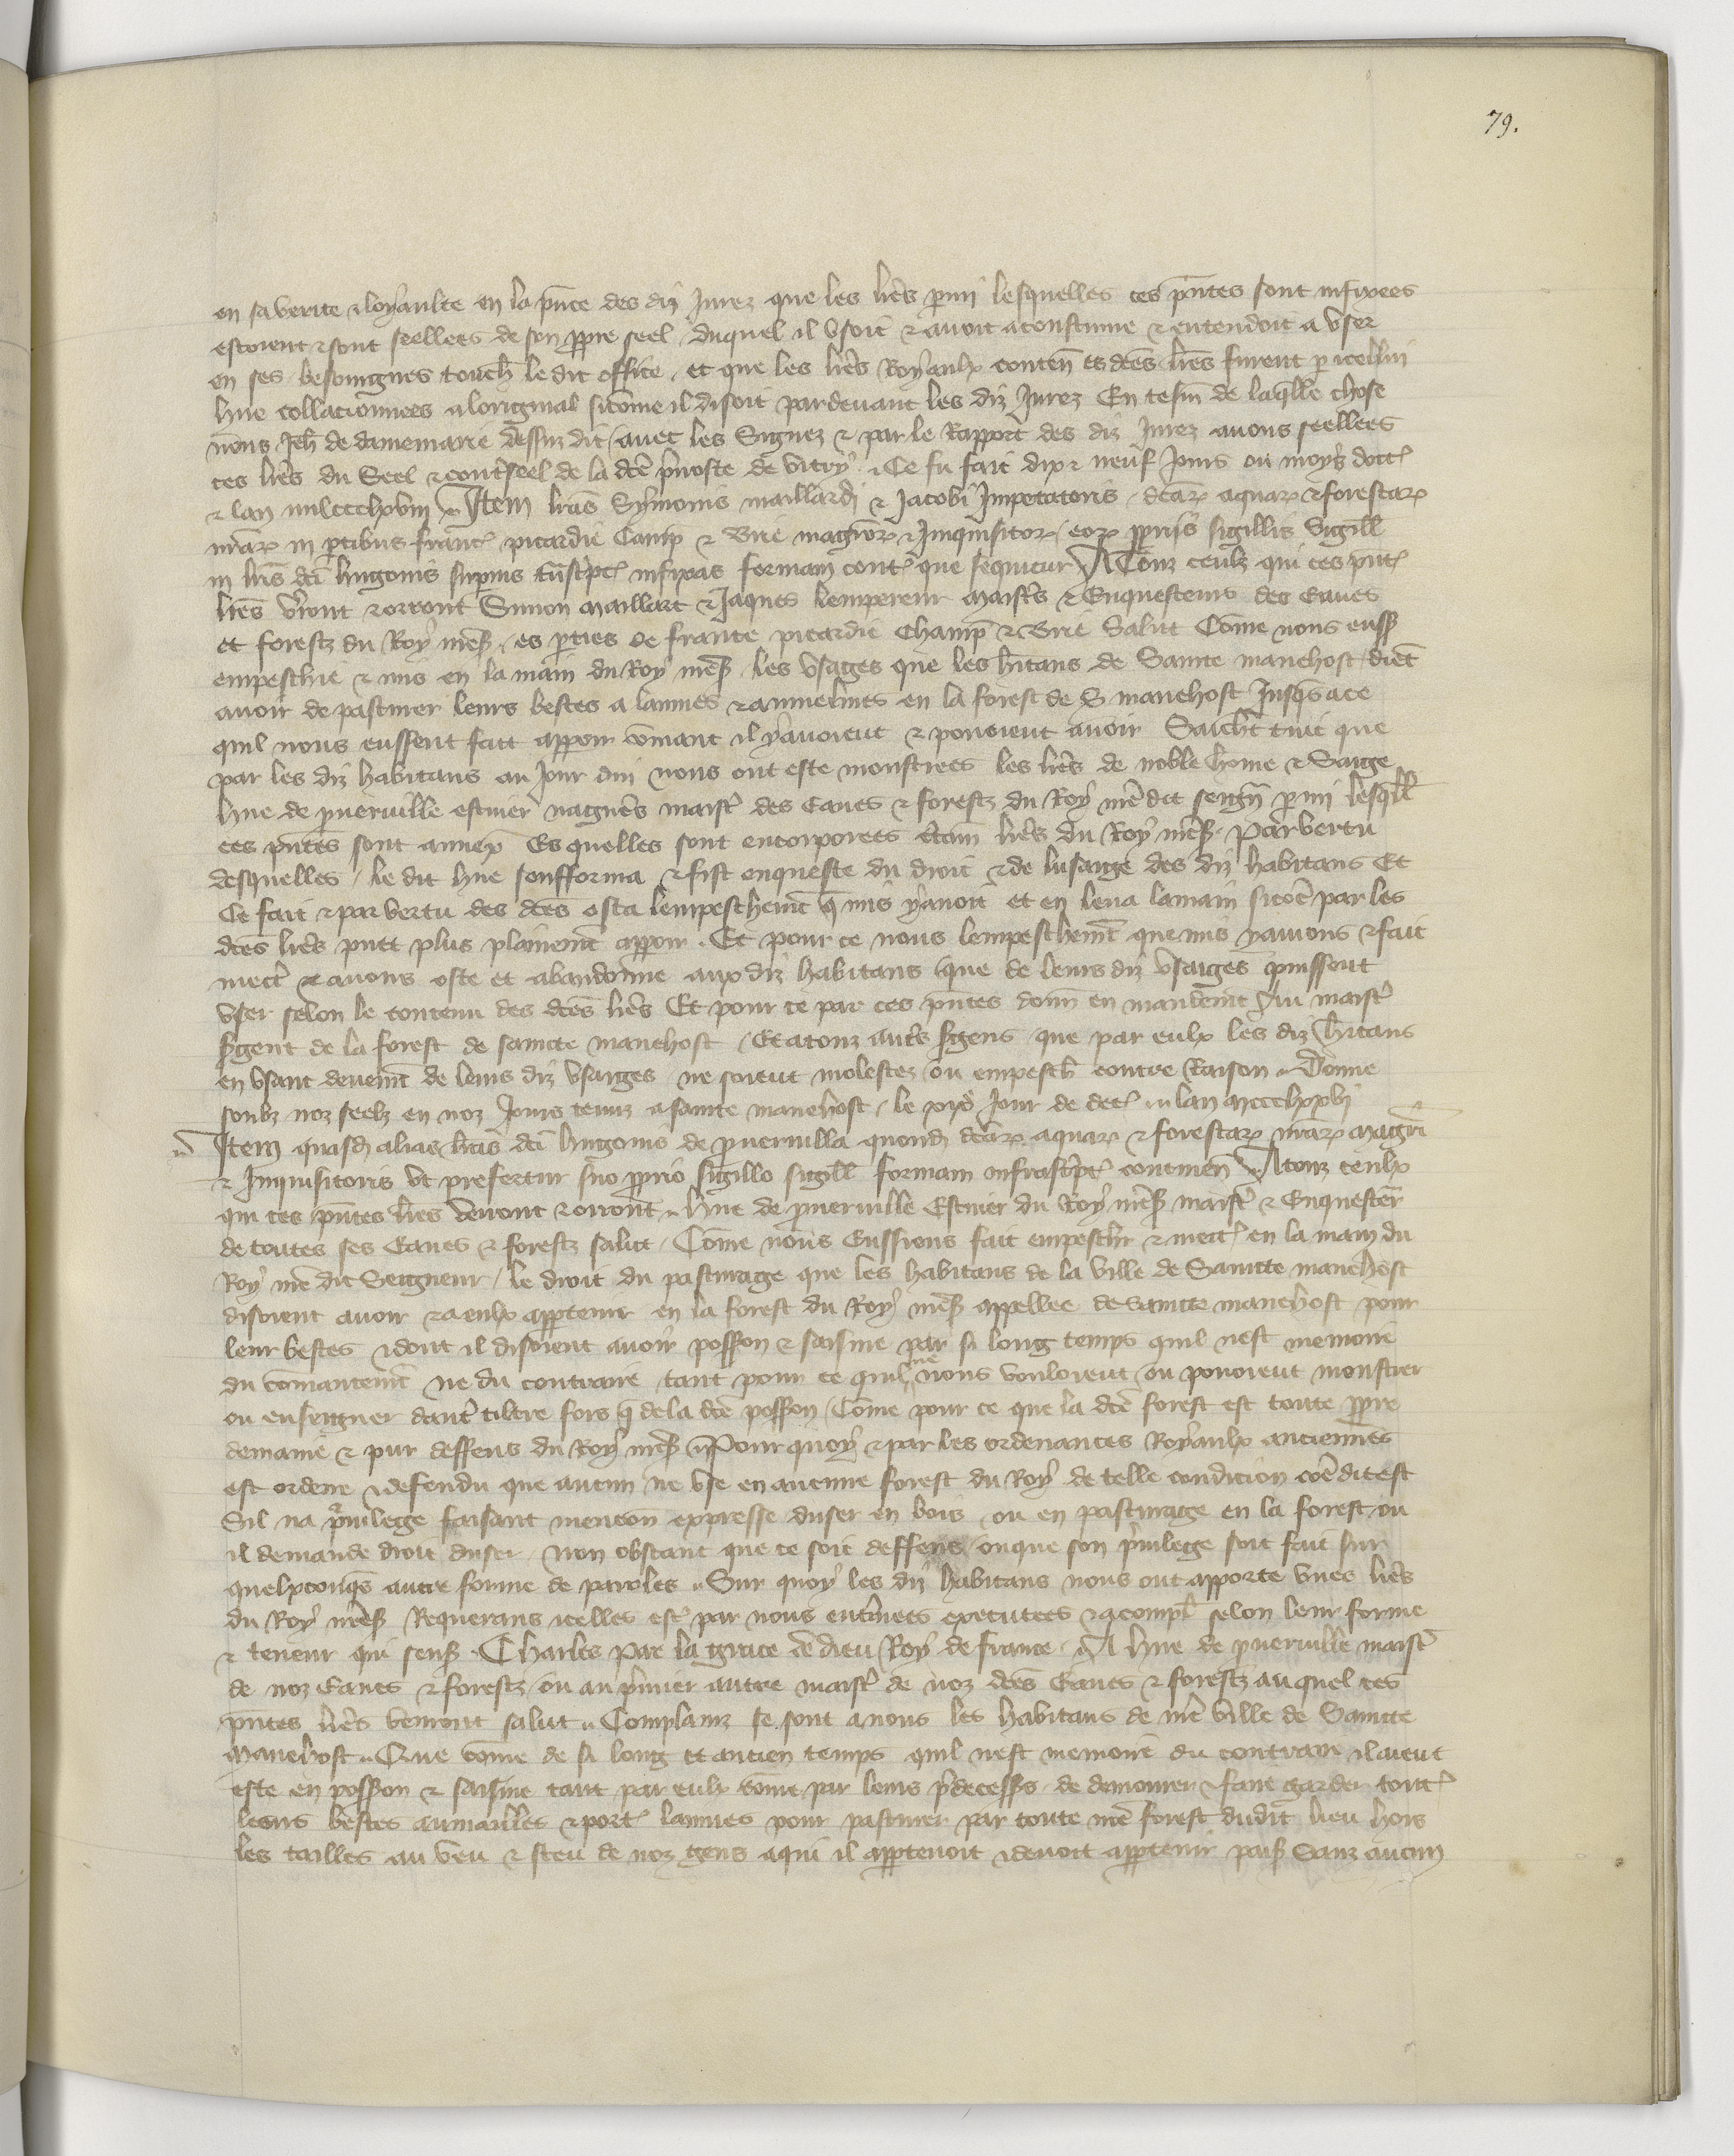 79.
en sa verite & loyaulte en la pñce des diz Jurez que les lrẽs parmi lesquelles ces pñtes sont infixees
estoient & sont seellees de son ppre seel duquel il usoit & avoit acoustume & entendoit a user
en ses besoingnes touch̃ le dit office et que les lrẽs Royaulx conteñ es dcẽs lrẽs furent p icellui
hue collacionnees a loriginal sicõme il disoit pardevant les diz Jurez En tesm̃ de laq̃lle chose
nous Jeh̃ de dannemarie dessuz dit avec les Signez & par le Rapport des diz Jurez avons seellees
ces lrẽs du Seel & cont'seel de la dcẽ p̃voste de vitry Ce fu fait dix & neuf Jours ou moys doct'
& lan mil ccclxviij Item lrãs Symonis maillardi & Jacobi Imperatoris dcãr aquar & forestar
nr̃ar in p̃tibus franc' picardie Camp̃ & Brie magror & Inquisitor eor pprijs sigillis Sigill
in lrĩs dcĩ hugonis supius t̃nscript' infixas formam cont' que sequitur A Touz ceulz qui ces pñt'
lrẽs v'ront & orront Simon Maillart & Jaques lempereur Maistr̃s & Enquesteurs des Eaues
et forestz du Roy nrẽs es p̃ties de france picardie Champ̃ & Brie Salut Cõme nous euss̃
empeschie & mis en la main du Roy nrẽs les usages que les h̃itans de Sainte manehost dient
avoir de pasturer leurs bestes a lannes & aumelines en la forest de S manehost Jusq̃s a ce
quil nous eussent fait apparoir cõmant il y avoient & povoient avoir Saich̃t tuit que
par les diz habitans au Jour dui nous ont este monstrees les lrẽs de noble hõme & Saige
hue de pueruille escuier nagueres maistr̃ des Eaues & forestz du Roy nrẽ dit seign̄ parmi lesq̃lles
ces pñtes sont annex̃ Es quelles sont encorporees c̃tain̄ lrẽs du Roy nrẽs Par vertu
desquelles le dit hue senfforma & fist enqueste du droit & de lusaige des diz habitans Et
Ce fait & par vertu des dcẽs osta lempeschem̃t q̃ mis y avoit et en leva la main sicõe par les
dcẽs lrẽs puet plus plainem̃t apparoir Et pour ce nous lempeschem̃t que mis y avions & fait
mectr̃ & avons oste et abandonne aux diz habitans que de leurs diz usaiges puissent
user selon le contenu des dcẽs lrẽs Et pour ce par ces pñtes donn̄ en mandem̃t Au maistr̃
s̃gent de la forest de saincte manehost Et a touz autr̃s s̃gens que par eulx les diz h̃itans
en usant deuem̃t de leurs diz usaiges ne soient molestez ou empesch̃ contre Raison Donne
soubz noz seelz en noz Jours tenuz a sainte manehost le jour de dec' lan mccclxxvj
Item quasd̃ alias lrãs dcĩ hugonis de pueruilla quond̃ dcãr aquar & forestar nr̃ar magrĩ
& Inquisitoris ut prefertur suo pprio sigillo sigill formam infrascript' continen̄ A touz ceulx
qui ces pñtes lrẽs verront & orront hue de pueruille Escuier du Roy nrẽs maistr̃ & Enquesteur
de toutes ses Eaues & forestz salut Cõme nous Eussiens fait empeschr̃ & mectr' en la main du
Roy nrẽ dit Seigneur le droit du pasturage que les habitans de la ville de Saincte manehost
disoient avoir & a eulx appertenir en la forest du Roy nrẽs appellee de Saincte manehost pour
leur bestes & dont il disoient avoir possion & saisine par si long temps quil nest memoire
du cõmancem̃t ne du contraire tant pour ce quil ne nous vouloient ou povoient monstrer
ou enseigner dautr̃ tiltre fors q̃ de la dcẽ possion Cõme pour ce que la dcẽ forest est toute ppre
demaine & pur deffens du Roy nrẽs Pour quoy & par les ordenances Royaulx anciennes
est ordene & defendu que aucun ne use en aucune forest du Roy de telle condicion cõe dit est
Sil na p̃vilege faisant mencõn expresse duser en bois ou en pasturage en la forest ou
il demande droit duser Non obstant que ce soit deffens ou que son p̃vilege soit fait sur
quelxconq̃s autre forme de paroles Sur quoy les diz habitans nous ont apporte unes lrẽs
du Roy nrẽs Requerans icelles est' par nous ent̃inees executees & acompl̃ selon leur forme
& teneur qui sens̃ Charles Par la grace de dieu Roy de france A hue de pueruille maistr̃
de noz Eaues & forestz ou au p̃mier autre maistr̃ de noz dcẽs Eaues & forestz auquel ces
pñtes lrẽs venront salut Complainz se sont a nous les habitans de nrẽ ville de Saincte
Manehost Que cõme de si long et ancien temps quil nest memoire du contraire il aient
este en possion & saisine tant par eulx cõme par leurs p̃decess̃s de demourer & faire garder tout'
leurs bestes aumailles & port' lannes pour pasturer par toute nrẽ forest dudit lieu hors
les tailles au veu & sceu de noz gens a qui il appertenoit & devoit appertenir paiz Sanz aucun